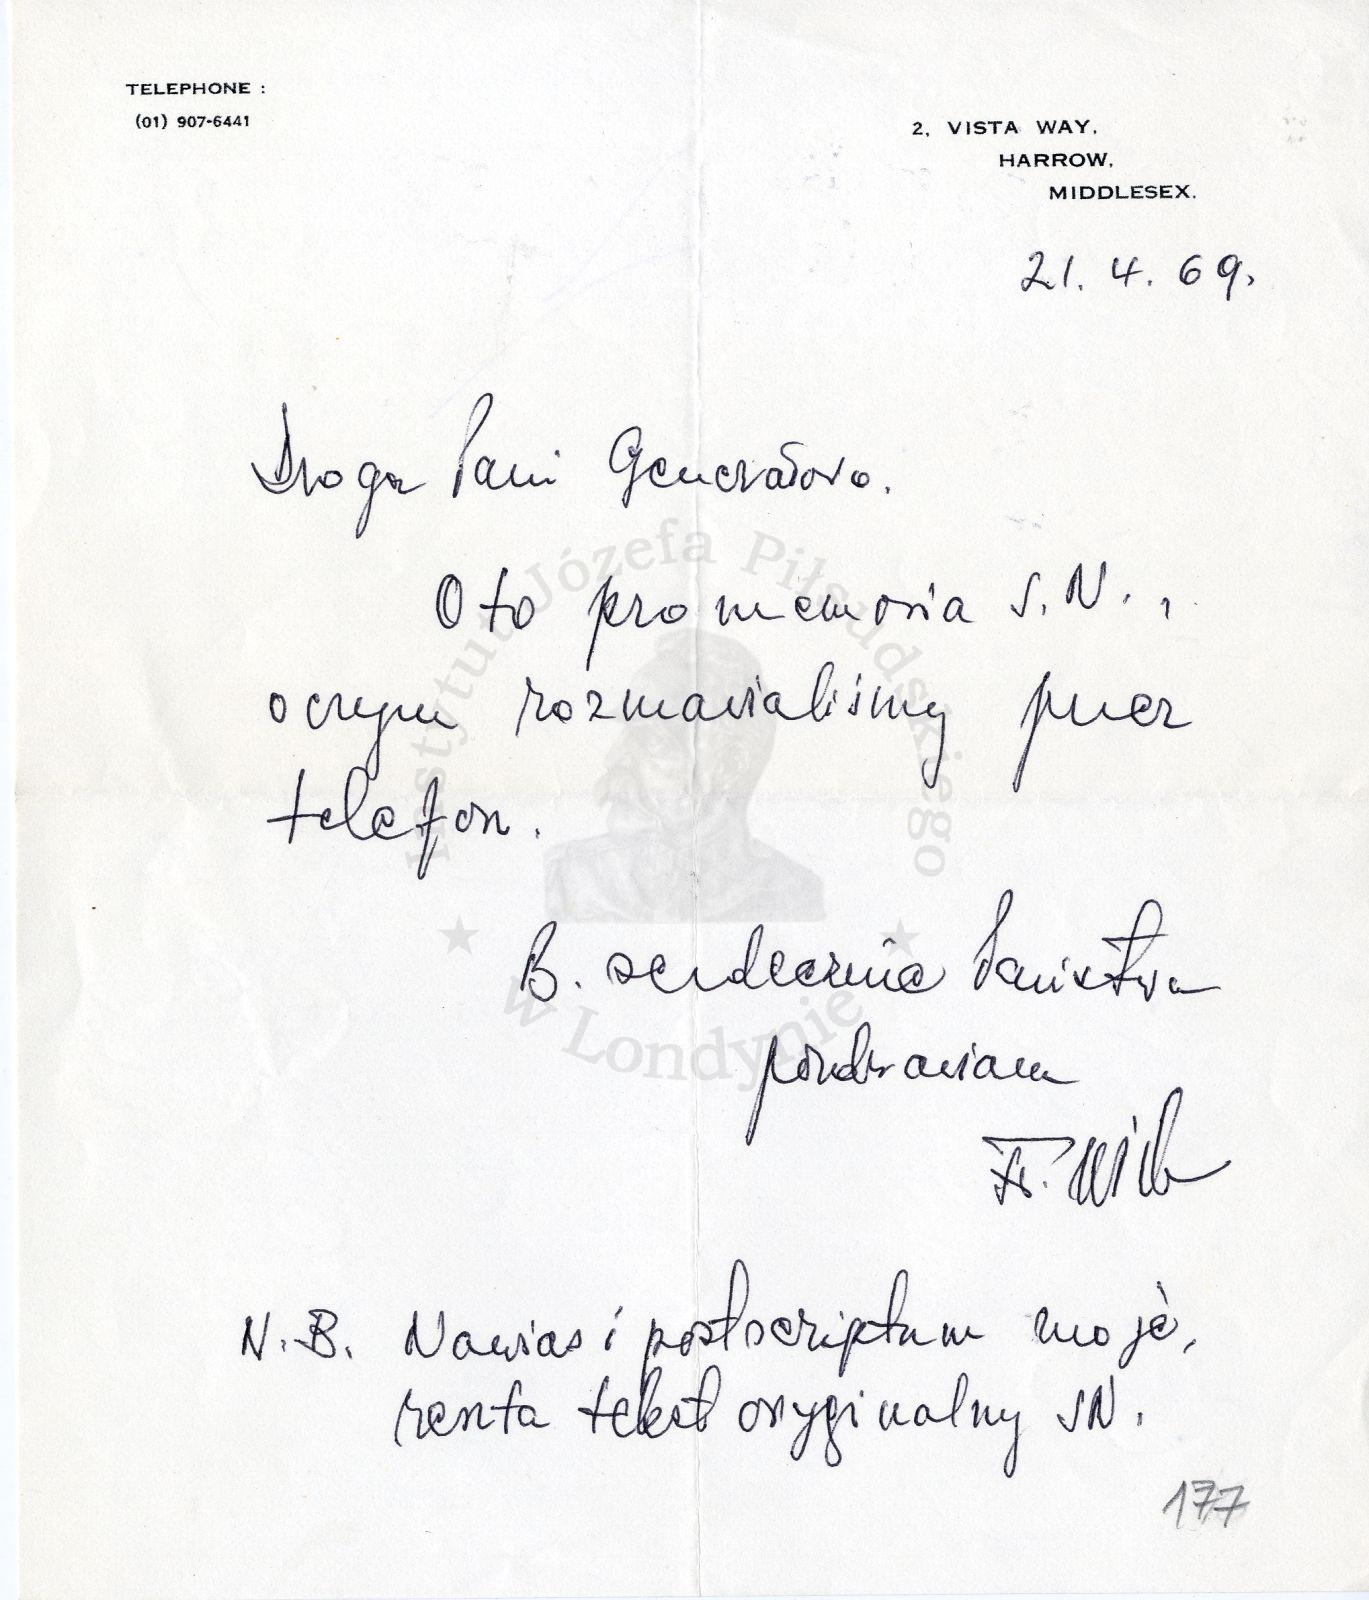 TELEPHONE :
(01) 907-6441
2, VISTA WAY,
HARROW,
MIDDLESEX.
21. 4. 69.
Droga Pani Generałowo.
Oto pro memoria S.N.,
o czym rozmawialiśmy przez
telefon.
B. serdecznie Państwa
pozdrawiam
N.B. Nawias i postscriptum moje,
reszta tekst oryginalny SN.
177
Instytut Józefa Piłsudskiego
w Londynie